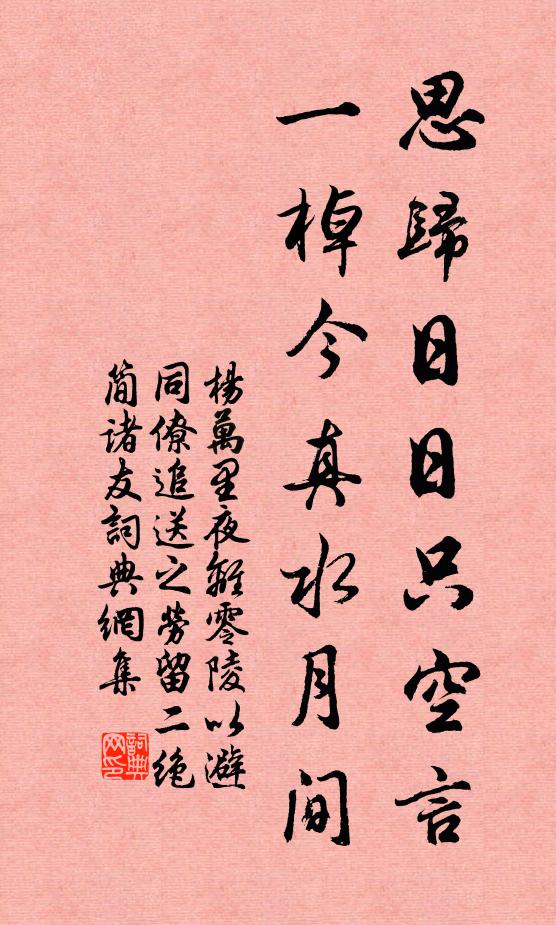 思歸日日只空言
一棹今真水月間
楊萬里夜離零陵以避
同僚追送之勞留二絶
簡諸友詞典網集
詞典网印